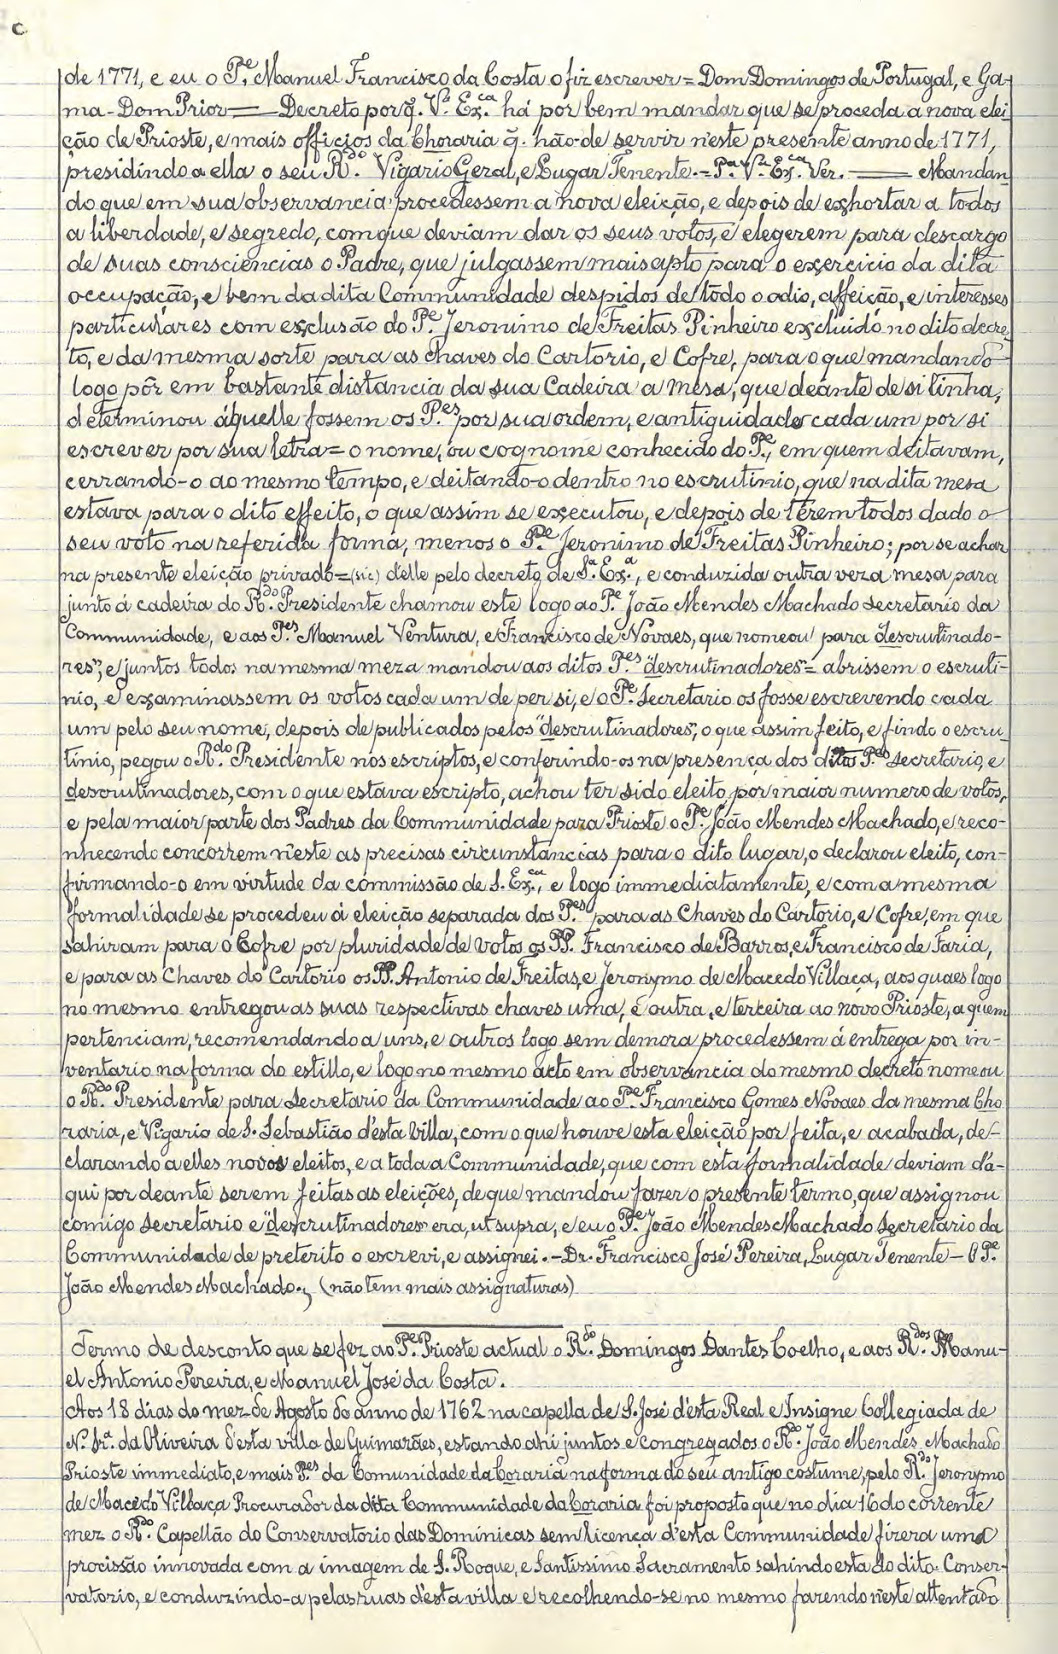 c
de 1771, e eu o Pe. Manuel Francisco da Costa o fiz escrever = Dom Domingos de Portugal, e Ga-
ma - Dom Prior = Decreto por q̃. Vª. Exca. há por bem mandar que se proceda a nova elei
ção de Prioste, e mais officios da Choraria q̃. hão-de servir n'este presente anno de 1771,
presidindo a ella o seu Rdo. Vigario Geral, e Lugar Tenente. = Pª. Vª. Exca. Ver. = Mandan
do que em sua observancia procedessem a nova eleição, e depois de exhortar a todos
a liberdade, e segredo, com que deviam dar os seus votos, e elegerem para descargo
de suas consciencias o Padre, que julgassem mais apto para o exercicio da dita
occupação, e bem da dita Communidade despidos de todo o odio, affeição, e interesses
particulares com exclusão do Pe. Jeronimo de Freitas Pinheiro excluido no dito decre
to, e da mesma sorte para as chaves do Cartorio, e Cofre, para o que mandando
logo pôr em bastante distancia da sua Cadeira a mesa, que deante de si tinha,
determinou áquelle fossem os Pes. por sua ordem, e antiguidade cada um por si
escrever por sua letra = o nome, ou cognome conhecido do Pe., em quem deitavam,
cerrando-o ao mesmo tempo, e deitando-o dentro no escrutinio, que na dita mesa
estava para o dito effeito, o que assim se executou, e depois de terem todos dado o
seu voto na referida forma, menos o Pe. Jeronimo de Freitas Pinheiro; por se achar
na presente eleição privado = (sic) d'elle pelo decreto de Sª. Exª., e conduzida outra vez a mesa para
junto á cadeira do Rdo. Presidente chamou este logo ao Pe. João Mendes Machado secretario da
Communidade, e aos Pes. Manuel Ventura, e Francisco de Novaes, que nomeou para "descrutinado-
res", e juntos todos na mesma meza mandou aos ditos Pes. "descrutinadores" = abrissem o escruti-
nio, e examinassem os votos cada um de per si, e o Pe. Secretario os fosse escrevendo cada
um pelo seu nome, depois de publicados pelos "descrutinadores", o que assim feito, e findo o escru
tinio, pegou o Rdo. Presidente nos escriptos, e conferindo-os na presença dos ditos Pes. secretario, e
descrutinadores, com o que estava escripto, achou ter sido eleito por maior numero de votos,
e pela maior parte dos Padres da Communidade para Prioste o Pe. João Mendes Machado, e reco-
nhecendo concorrem n'este as precisas circunstancias para o dito lugar, o declarou eleito, con-
firmando-o em virtude da commissão de S. Exca., e logo immediatamente, e com a mesma
formalidade se procedeu á eleição separada dos Pes. para as Chaves do Cartorio, e Cofre, em que
sahiram para o Cofre por pluridade de votos os PP. Francisco de Barros, e Francisco de Faria,
e para as Chaves do Cartorio os PP. Antonio de Freitas, e Jeronymo de Macedo Villaça, aos quaes logo
no mesmo entregou as suas respectivas chaves uma, e outra, e terceira ao novo Prioste, a quem
pertenciam, recomendando a uns, e outros logo sem demora procedessem á entrega por in-
ventario na forma do estillo, e logo no mesmo acto em observancia do mesmo decreto nomeou
o Rdo. Presidente para Secretario da Communidade ao Pe. Francisco Gomes Novaes da mesma Cho
raria, e Vigario de S. Sebastião d'esta Villa, com o que houve esta eleição por feita, e acabada, de-
clarando a elles novos eleitos, e a toda a Communidade, que com esta formalidade deviam d'a-
qui por deante serem feitas as eleições, de que mandou fazer o presente termo, que assignou
comigo secretario e "descrutinadores" era, ut supra, e eu o Pe. João Mendes Machado Secretario da
Communidade de preterito o escrevi, e assignei. - Dr. Francisco José Pereira, Lugar Tenente - O Pe.
João Mendes Machado., (não tem mais assignaturas)
Termo de desconto que se fez ao Pe. Prioste actual o Rdo. Domingos Dantes Coelho, e aos Rdos. Manu-
el Antonio Pereira, e Manuel José da Costa.
Aos 18 dias do mez de Agosto do anno de 1762 na capella de S. José d'esta Real e Insigne Collegiada de
N. Srª. da Oliveira d'esta villa de Guimarães, estando ahi juntos e congregados o Rdo. João Mendes Machado
Prioste immediato, e mais Pes. da Communidade da Coraria na forma do seu antigo costume, pelo Rdo. Jeronymo
de Macedo Villaça Procurador da dita Communidade da Coraria foi proposto que no dia 16 do corrente
mez o Rdo. Capellão do Conservatorio das Dominicas sem licença d'esta Communidade fizera uma
procissão innovada com a imagem de S. Roque, e Santissimo Sacramento sahindo esta do dito Conser-
vatorio, e conduzindo-a pelas ruas d'esta villa e recolhendo-se no mesmo fazendo n'este attentado